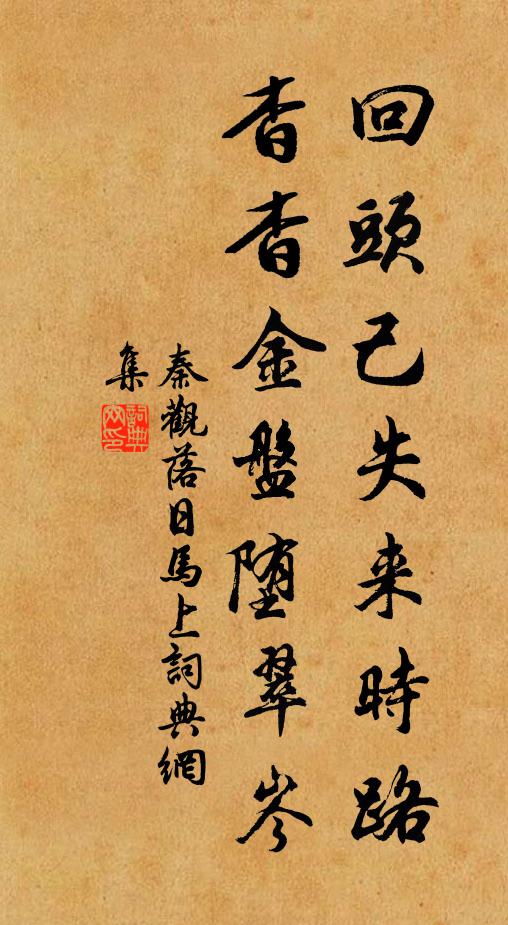 回頭已失来時路
杳杳金盤堕翠岑
秦觀落日馬上詞典網
集
詞典
网印